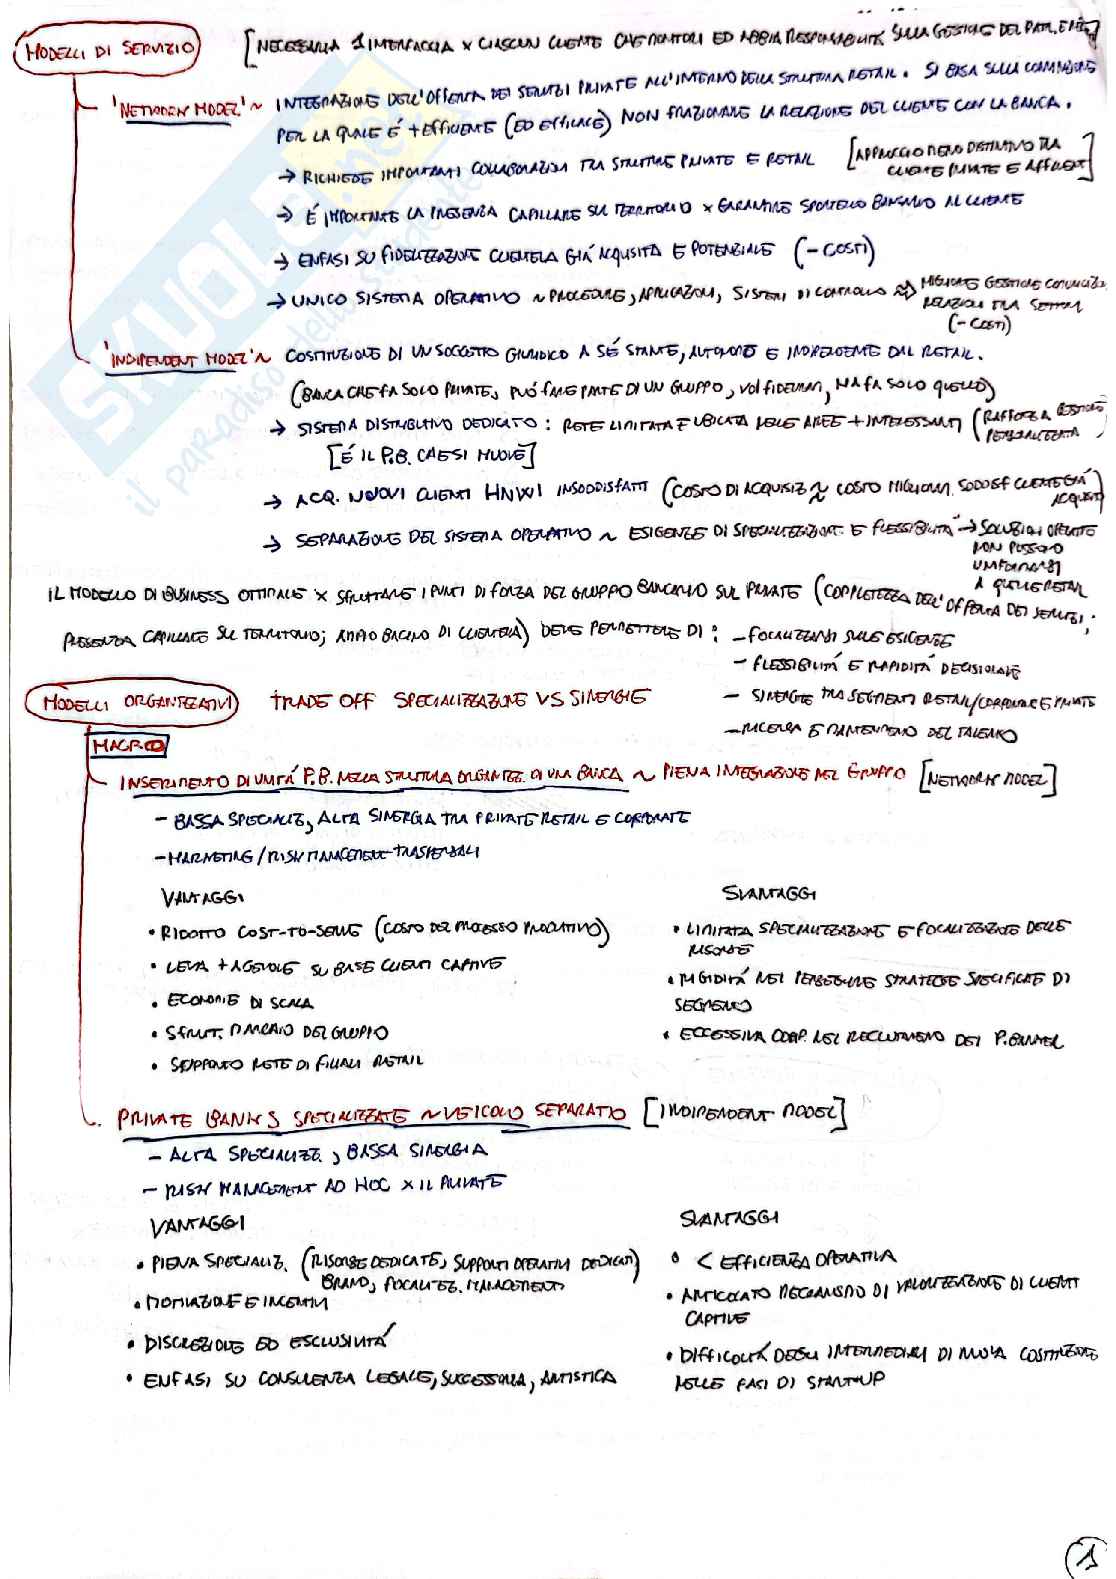 MODELLI DI SERVIZIO [NECESSARIA 1 INTERFACCIA x CIASCUN CLIENTE CHE MONITORI ED ABBIA RESPONSABILITÀ SULLA GESTIONE DEL PATR.
'NETWORK MODEL' ~ INTEGRAZIONE DELL'OFFERTA DEI SERVIZI PRIVATE ALL'INTERNO DELLA STRUTTURA RETAIL. SI BASA SULLA CONVINZIONE
PER LA QUALE É + EFFICIENTE (ED EFFICACE) NON FRAZIONARE LA RELAZIONE DEL CLIENTE CON LA BANCA.
→ RICHIEDE IMPORTANTI COLLABORAZIONI TRA STRUTTURE PRIVATE E RETAIL [APPROCCIO MENO DISTINTIVO TRA
CLIENTE PRIVATE E AFFLUENT]
→ É IMPORTANTE LA PRESENZA CAPILLARE SUL TERRITORIO x GARANTIRE SPORTELLO BANCARIO AL CLIENTE
→ ENFASI SU FIDELIZZAZIONE CLIENTELA GIÀ ACQUISITA E POTENZIALE (- COSTI)
→ UNICO SISTEMA OPERATIVO ~ PROCEDURE, APPLICAZIONI, SISTEMI DI CONTROLLO ⇒ MIGLIORE GESTIONE
RELAZIONI TRA SETTORI
(- COSTI)
'INDIPENDENT MODEL' ~ COSTITUZIONE DI UN SOGGETTO GIURIDICO A SÉ STANTE, AUTONOMO E INDIPENDENTE DAL RETAIL.
(BANCA CHE FA SOLO PRIVATE, PUÓ FARE PARTE DI UN GRUPPO, MA FA SOLO QUELLO)
→ SISTEMA DISTRIBUTIVO DEDICATO: RETE LIMITATA E UBICATA NELLE AREE + INTERESSANTI (RAFFORZA GESTIONE
PERSONALIZZATA)
[É IL P.B. CHE SI MUOVE]
→ ACQ. NUOVI CLIENTI HNWI INSODDISFATTI (COSTO DI ACQUISIZ ≈ COSTO MIGLIORAM. SODDISF CLIENTE GIÀ
ACQUISITO)
→ SEPARAZIONE DEL SISTEMA OPERATIVO ~ ESIGENZE DI SPECIALIZZAZION. E FLESSIBILITÀ → SOLUZIONI OPERATIVE
NON POSSONO
UNIFORMARSI
A QUELLE RETAIL
IL MODELLO DI BUSINESS OTTIMALE x SFRUTTARE I PUNTI DI FORZA DEL GRUPPO BANCARIO SUL PRIVATE (COMPLETEZZA DELL'OFFERTA DEI SERVIZI;
PRESENZA CAPILLARE SUL TERRITORIO; AMPIO BACINO DI CLIENTELA) DEVE PERMETTERE DI: - FOCALIZZARSI SULLE ESIGENZE
- FLESSIBILITÀ E RAPIDITÀ DECISIONALE
- SINERGIE TRA SEGMENTI RETAIL/CORPORATE E PRIVATE
- RICERCA E MANTENIMENTO DEL TALENTO
MODELLI ORGANIZZATIVI TRADE OFF SPECIALIZZAZIONE VS SINERGIE
MACRO
INSERIMENTO DI UNITÀ P.B. NELLA STRUTTURA ORGANIZZ. DI UNA BANCA ~ PIENA INTEGRAZIONE NEL GRUPPO [NETWORK MODEL]
- BASSA SPECIALIZZ, ALTA SINERGIA TRA PRIVATE RETAIL E CORPORATE
- MARKETING/RISK MANAGEMENT TRASVERSALI
VANTAGGI SVANTAGGI
• RIDOTTO COST-TO-SERVE (COSTO DEL PROCESSO PRODUTTIVO) • LIMITATA SPECIALIZZAZIONE E FOCALIZZAZIONE DELLE
RISORSE
• LEVA + AGEVOLE SU BASE CLIENTI CAPTIVE • RIGIDITÀ NEL PERSEGUIRE STRATEGIE SPECIFICHE DI
SEGMENTO
• ECONOMIE DI SCALA
• SFRUT. MARCHIO DEL GRUPPO • ECCESSIVA COMP. NEL RECLUTAMENTO DEI P. BANKER
• SUPPORTO RETE DI FILIALI RETAIL
PRIVATE BANKS SPECIALIZZATE ~ VEICOLO SEPARATO [INDIPENDENT MODEL]
- ALTA SPECIALIZZ., BASSA SINERGIA
- RISK MANAGEMENT AD HOC x IL PRIVATE
VANTAGGI SVANTAGGI
• PIENA SPECIALIZ. (RISORSE DEDICATE, SUPPORTI OPERATIVI DEDICATI
BRAND, FOCALIZZ. MANAGEMENT) • < EFFICIENZA OPERATIVA
• MOTIVAZIONE E INCENTIVI • ARTICOLATO MECCANISMO DI VALORIZZAZIONE DI CLIENTI
CAPTIVE
• DISCREZIONE ED ESCLUSIVITÀ • DIFFICOLTÀ DEGLI INTERMEDIARI DI NUOVA COSTITUZIONE
NELLE FASI DI START-UP
• ENFASI SU CONSULENZA LEGALE, SUCCESSORIA, ARTISTICA
1
SKUOLA.net
il paradiso dello studente